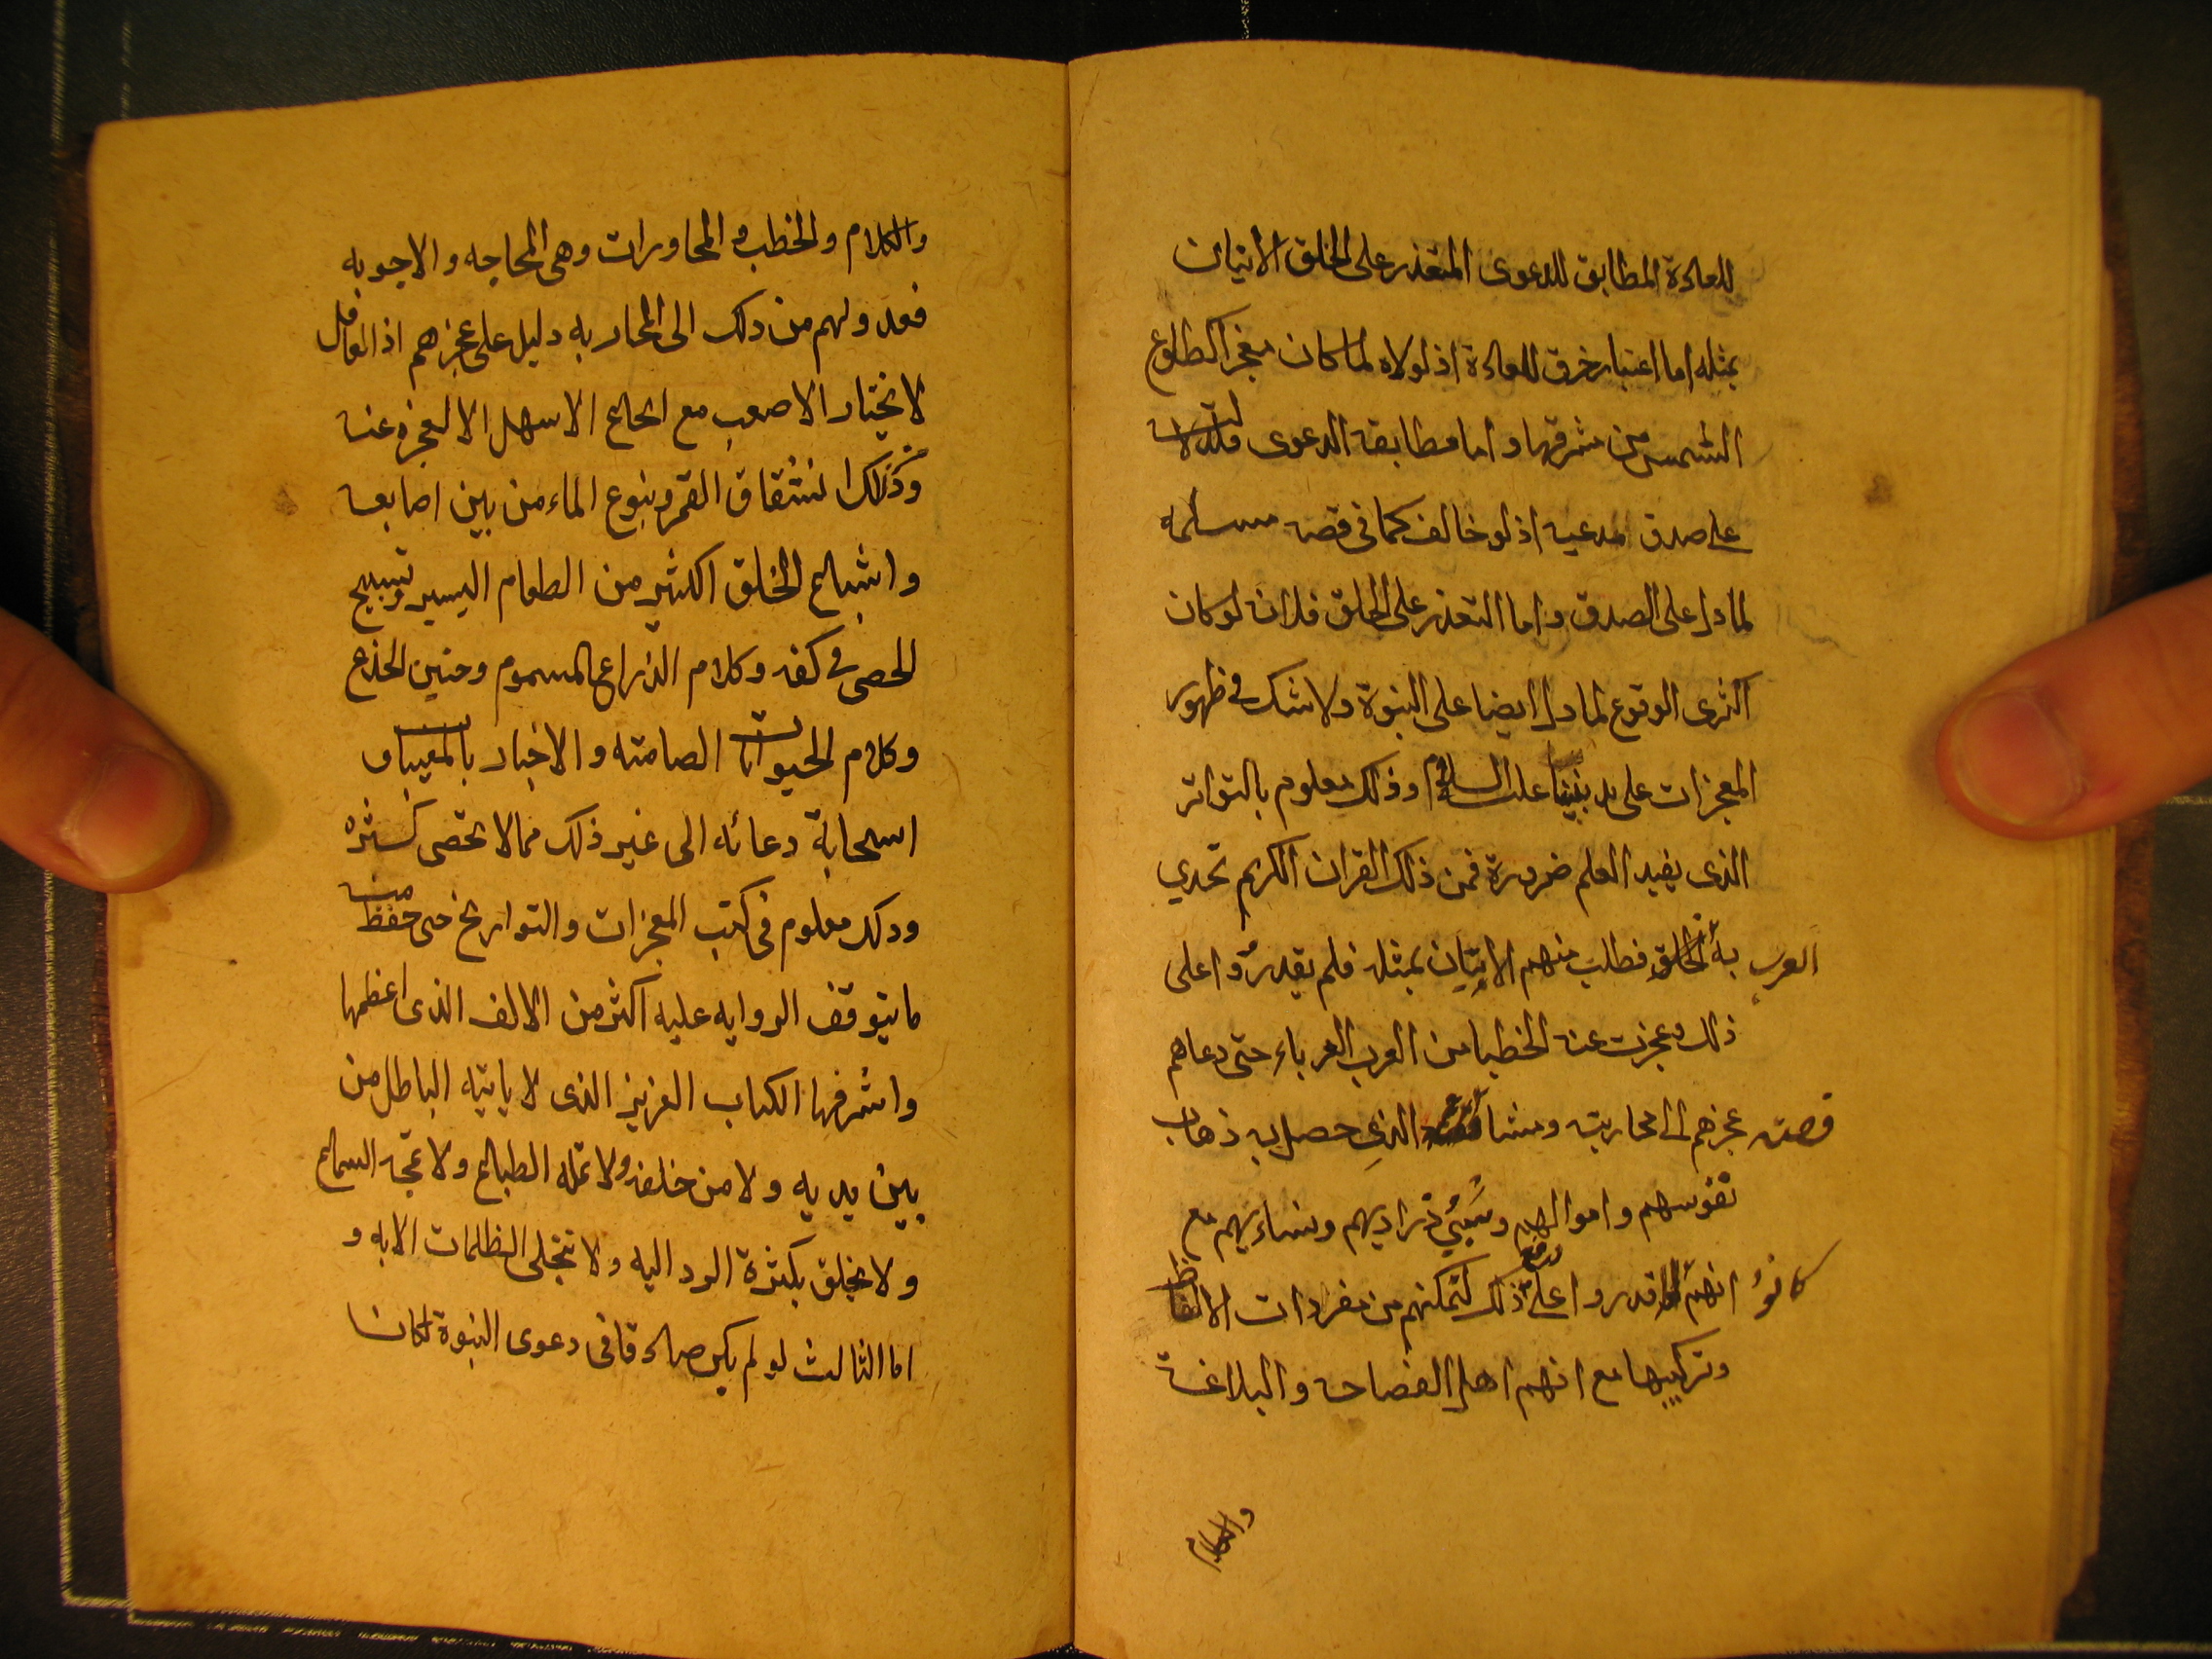 للعادة المطابق للدعوى المتعذر على الخلق الاتيان
بمثله اما اعتبار خرق للعادة اذ لولاه لما كان معجزا كطلوع
الشمس من مشرقها واما مطابقة الدعوى فلدلالته
على صدق مدعيه اذ لو خالف كما فى قصة مسيلمه
لما دل على الصدق واما التعذر على الخلق فلانه لو كان
اكثرى الوقوع لما دل ايضا على النبوة ولا شك فى ظهور
المعجزات على يد نبينا عليه السلام وذلك معلوم بالتواتر
الذى يفيد العلم ضرورة فمن ذلك القران الكريم تحدي
العرب به فطلب منهم الاتيان بمثله فلم يقدروا على
ذلك وعجزت عنه الخطبا من العرب العرباء حتى دعاهم
عجزهم الى محاربته الذى حصل به ذهاب
نفوسهم واموالهم وسبي ذراريهم ونساءيهم مع
كانوا قدروا على ذلك لتمكنهم من مفردات الالفاظ
وتركيبها مع انهم اهل الفصاحة والبلاغة
والكلام
والكلام والخطب والمحاورات وهى المحاجه والاجوبه
فعدولهم من ذلك الى المحاربه دليل على عجزهم اذ العاقل
لا يختار الاصعب مع انجاع الاسهل الا لعجزه عنه
وكذلك انشقاق القمر وينبوع الماء من بين اصابعه
واشباع الخلق الكثير من الطعام اليسير وتسبيح
الحصى فى كفه وكلام الذراع المسموم وحنين الجذع
وكلام الحيوانات الصامته والاخبار بالمغيبات
استجابة دعائه الى غير ذلك مما لا تحصى كثرة
وذلك معلوم فى كتب المعجزات والتواريخ حتى حفظ منه
ما يتوقف الروايه عليه اكثر من الالف الذى اعظمها
واشرفها الكتاب العزيز الذى لا ياتيه الباطل من
بين يديه ولا من خلفه ولا تمله الطباع ولا تمجه السماع
ولا يخلق بكثرة الرد اليه ولا تنجلى الظلمات الا به و
اما الثالث لو لم يكن صادقا فى دعوى النبوة لكان